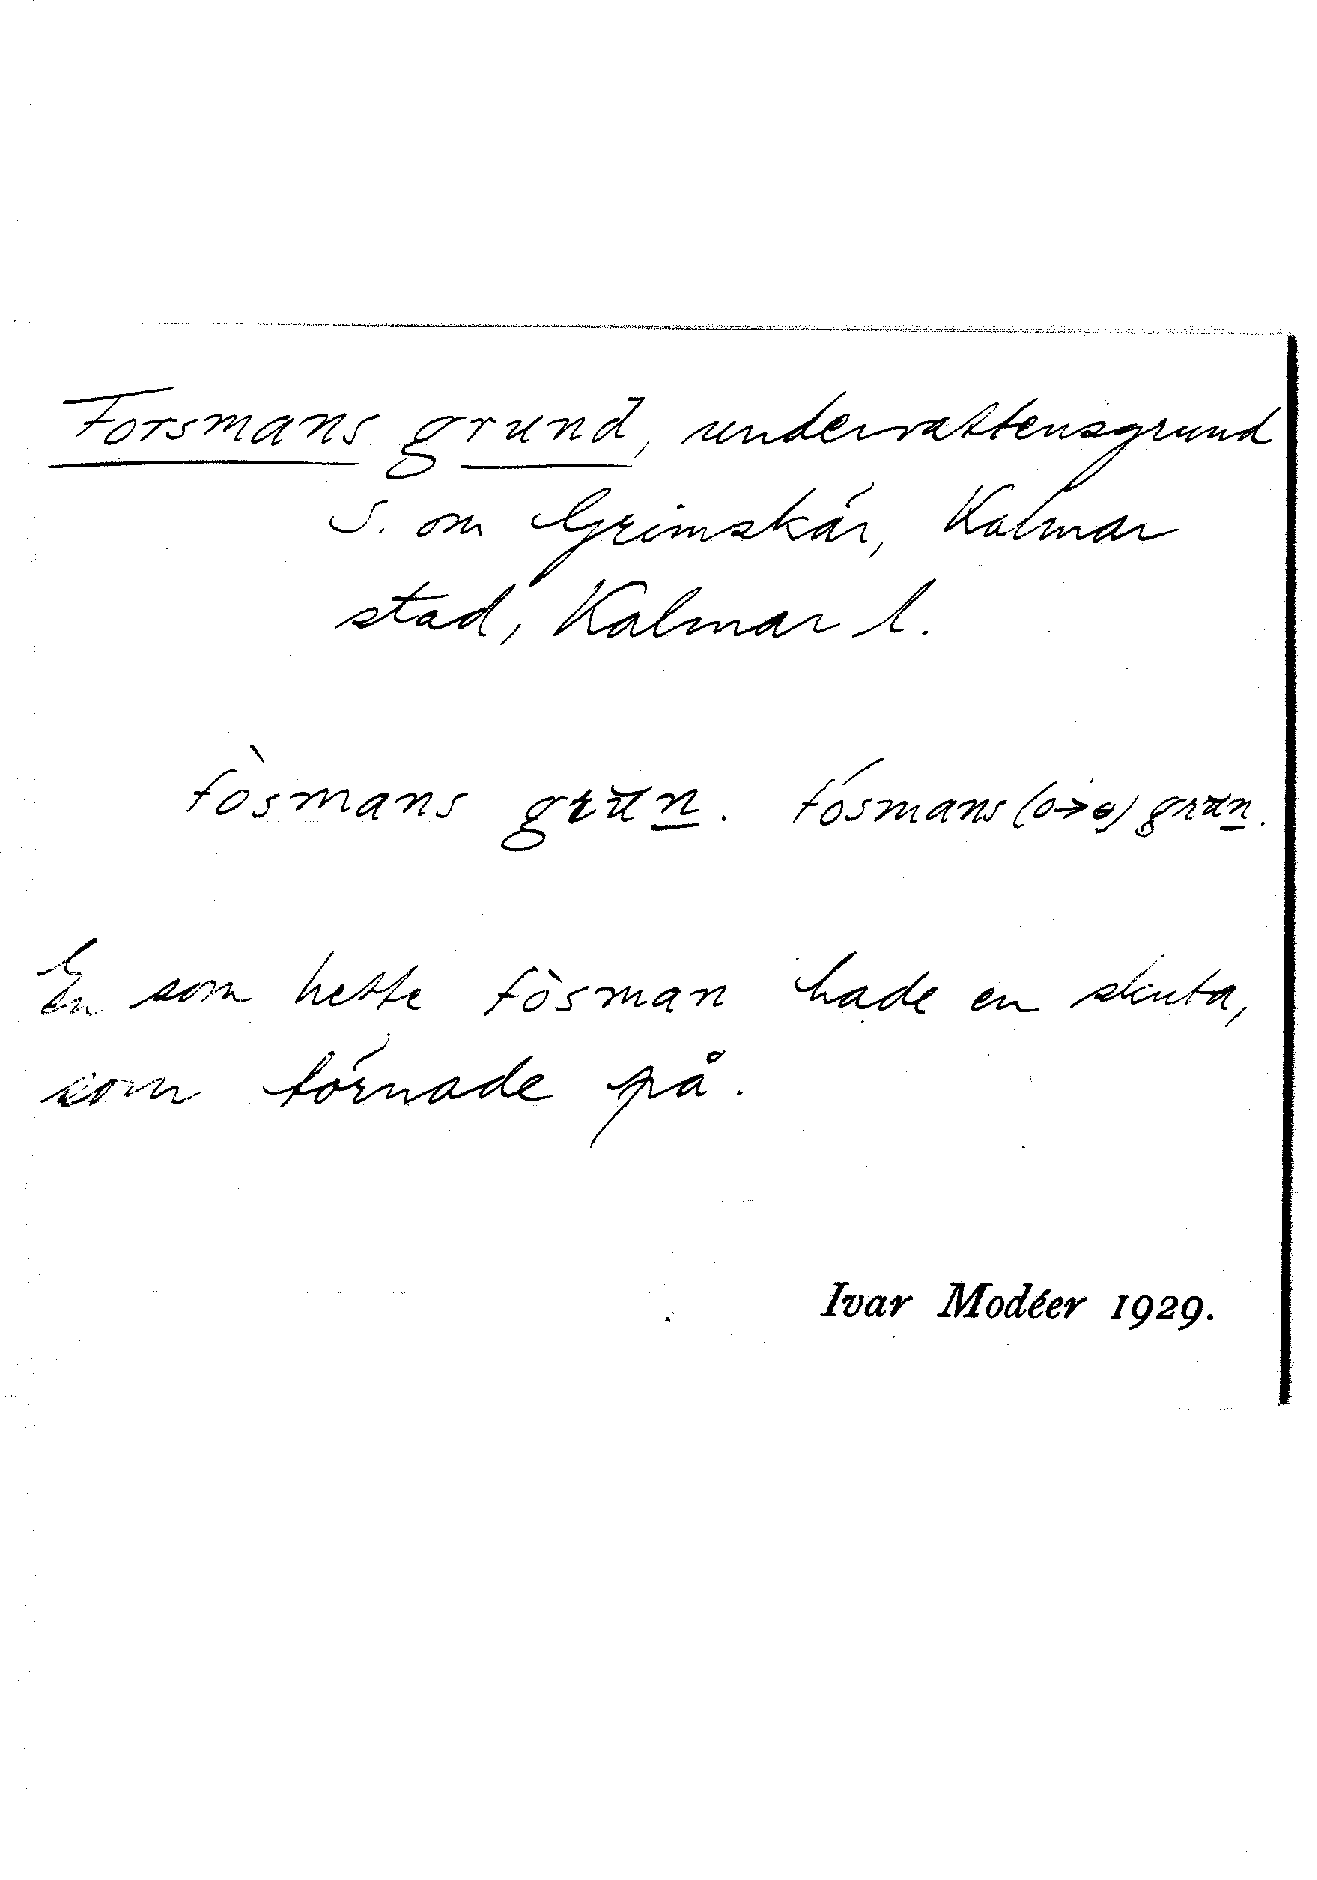 Forsmans grund, undervattensgrund
S. om Grimskär, Kalmar
stad, Kalmar l.
fòsmans grun. fósmans (o→ɵ) grun.
En som hette fòsman hade en skuta,
som törnade på.
Ivar Modéer 1929.